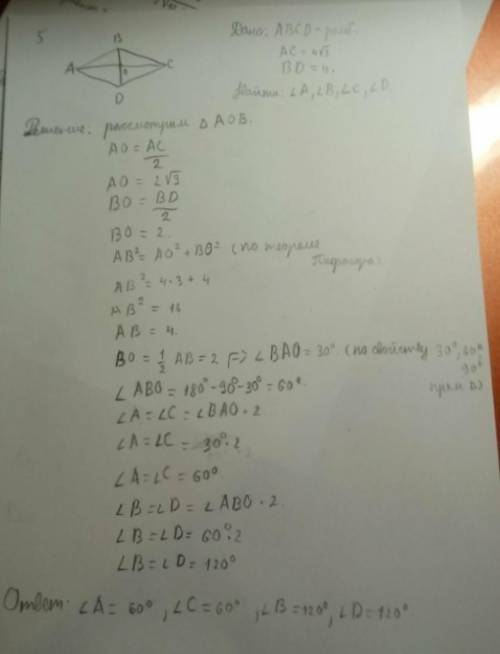 5
B
A
O
C
D
Дано: ABCD - ромб.
AC = 4√3
BD = 4.
Найти: ∠A, ∠B, ∠C, ∠D.
Решение: рассмотрим △ AOB.
AO = AC/2
AO = 2√3
BO = BD/2
BO = 2.
AB² = AO² + BO² (по теореме Пифагора)
AB² = 4·3 + 4
AB² = 16
AB = 4.
BO = 1/2 AB = 2 => ∠BAO = 30°. (по свойству 30°, 60°, 90°
∠ABO = 180° - 90° - 30° = 60°.
∠A = ∠C = ∠BAO · 2
∠A = ∠C = 30° · 2
∠A = ∠C = 60°
∠B = ∠D = ∠ABO · 2.
∠B = ∠D = 60° · 2
∠B = ∠D = 120°
Ответ: ∠A = 60°, ∠C = 60°, ∠B = 120°, ∠D = 120°.